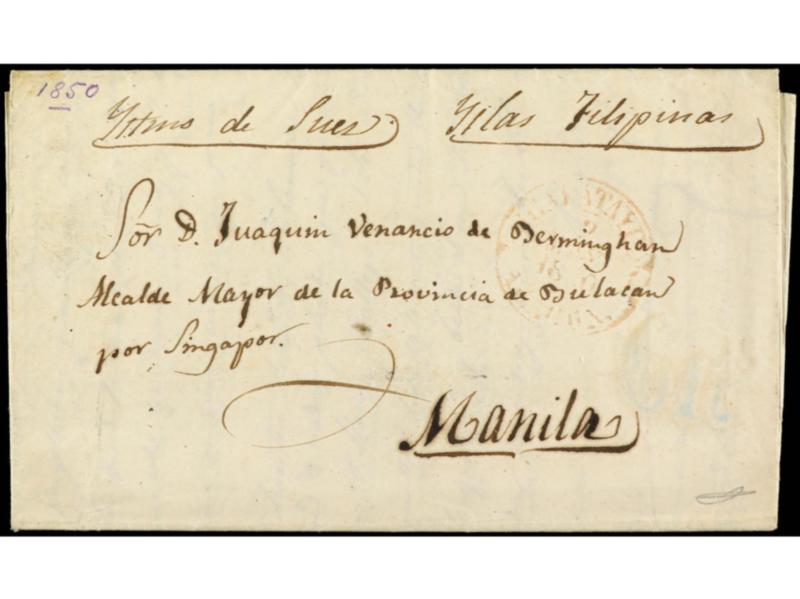 1850
Ystmo de Sues Yslas Filipinas
Sõr D. Juaquin Venancio de Berminghan
Alcalde Mayor de la Provincia de Bulacan
por Singapor.
Manila